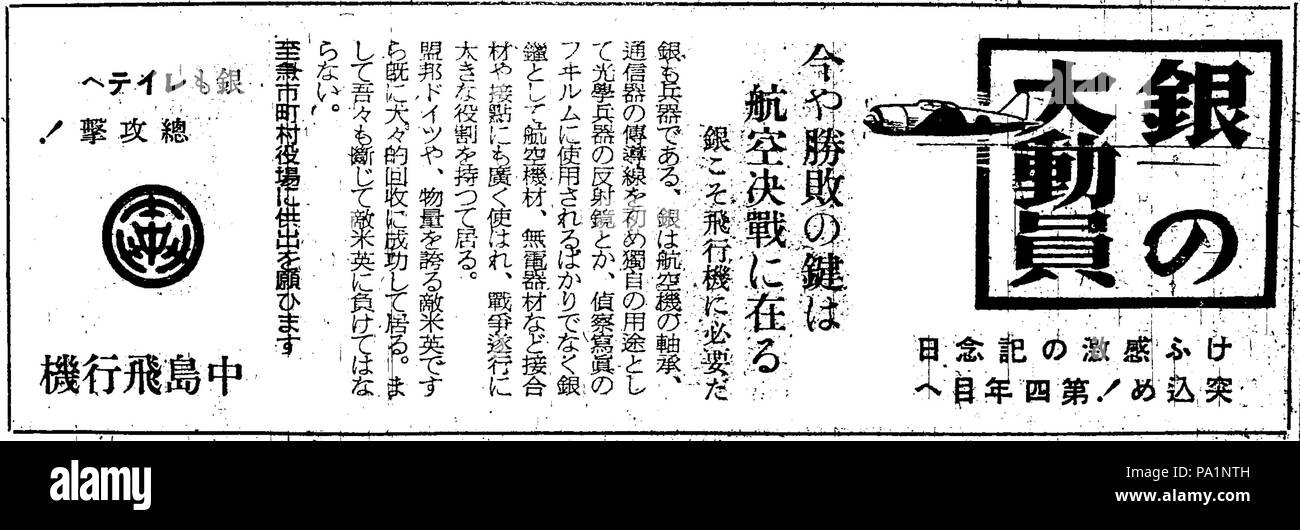 銀の
大動員
けふ感激の記念日
突込め!第四年目へ
今や勝敗の鍵は
航空決戰に在る
銀こそ飛行機に必要だ
銀も兵器である、銀は航空機の軸承、
通信器の傳導線を初め獨自の用途とし
て光學兵器の反射鏡とか、偵察寫眞の
フヰルムに使用されるばかりでなく銀
鑞として航空機材、無電器材など接合
材や接點にも廣く使はれ、戰爭遂行に
大きな役割を持つて居る。
盟邦ドイツや、物量を誇る敵米英です
ら既に大々的回收に成功して居る。ま
して吾々も斷じて敵米英に負けてはな
らない。
至急市町村役場に供出を願ひます
銀もレイテへ
總攻撃!
中
中島飛行機
alamy
Image ID: PA1NTH
www.alamy.com